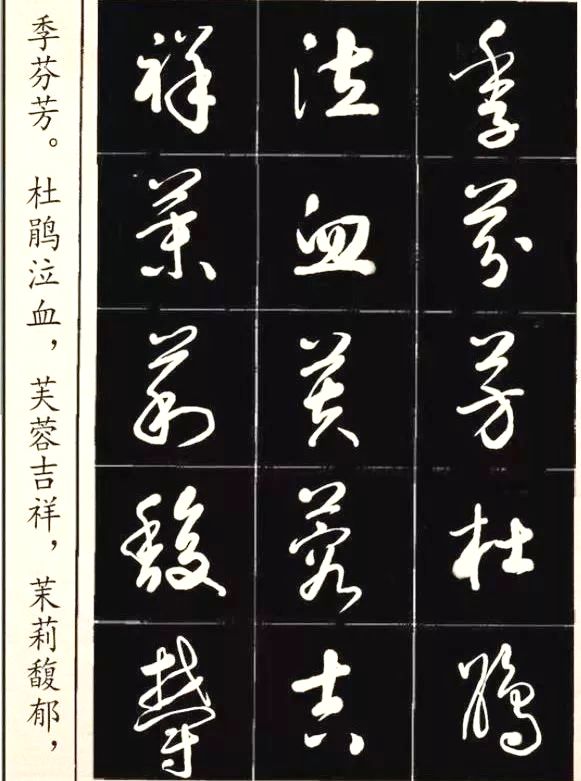 季芬芳杜鹃
泣血芙蓉吉
祥茉莉馥鬱
季芬芳。杜鹃泣血，芙蓉吉祥，茉莉馥郁，